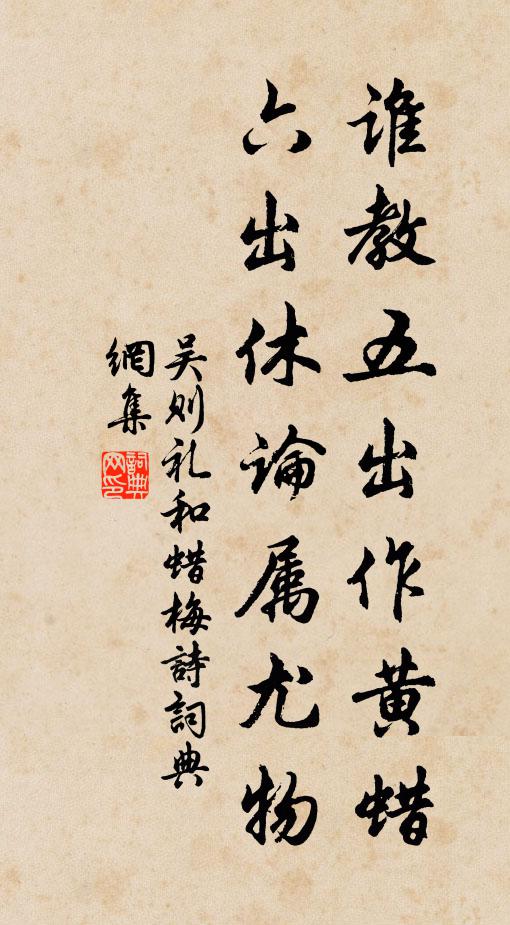 谁教五出作黄蜡
六出休論属尤物
吴则礼和蜡梅詩詞典
網集
詞典網印